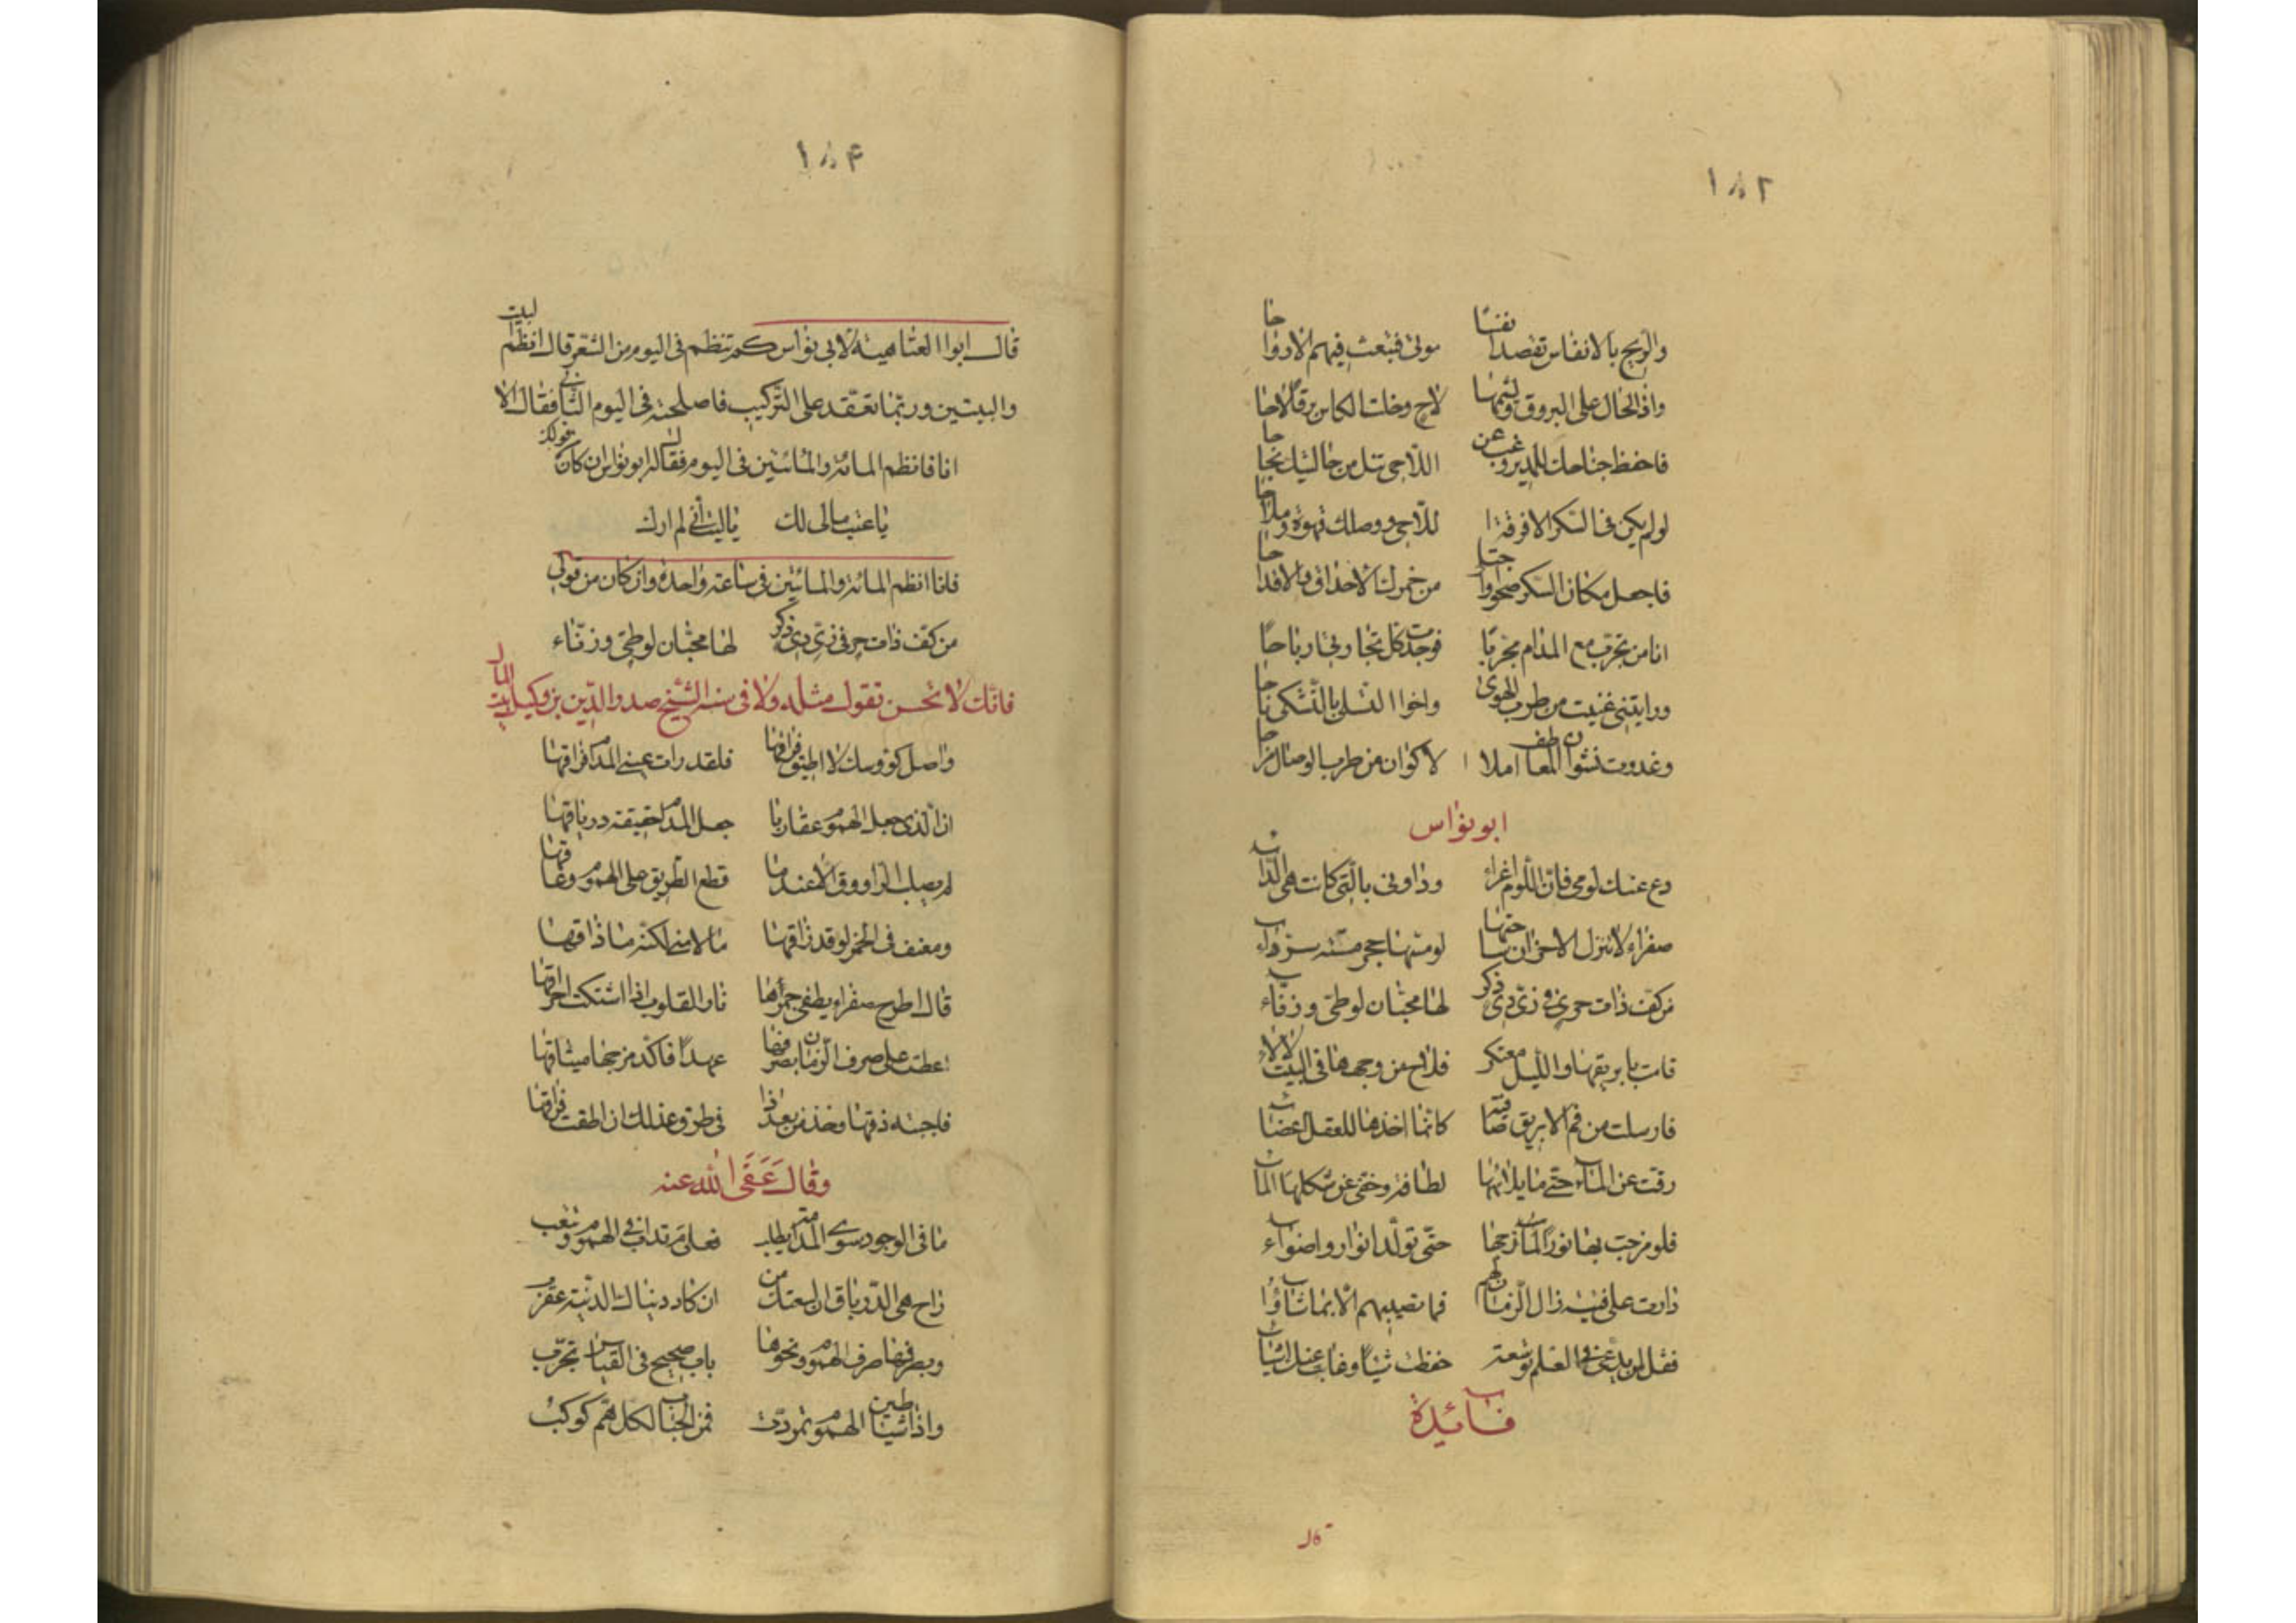 ١٨٢
والريح بالانفاس تقصد انفسًا موتى فتبعث فيهم الارواحا
واذا لخال على البروق ولثمها لاح وخلت الكاس برقًا لاحا
فاحفظ جناحك للمدير وغب عن اللاحي تنل من خا ليتك نجاحا
لو لم يكن فى السكر الا فرقة للاحي ووصلك قهوة وملاحا
فاجعل مكان السكر صحوا واجتنا من خمرك الاحداق والاقداحا
انا من تجرت مع المدام مجربًا فوجدت كل تجارتى ارباحًا
ورايتنى غنيت من طرب الهوى واخوا التسلى بالتشكى ناحا
وغدوت نشوان المعاطف املا الاكوان من طرب الوصال مزاحا
ابو نواس
دع عنك لومي فان اللوم اغراء وداونى بالتى كانت هى الداء
صفراء لا تنزل الاحزان ساحتها لو مسها حجر مسته سراء
من كف ذات حر فى زى ذى ذكر لها محبان لوطى وزناء
قامت بابريقها والليل معتكر فلاح من وجهها فى البيت لالاء
فارسلت من فم الابريق صافية كانما اخذها للعقل اغضاء
رقت عن الماء حتى ما يلائمها لطافة وخفى عن شكلها الماء
فلو مزجت بها نورًا لمازجها حتى تولد انوار واضواء
دارت على فتية ذال الزمان لهم فما تصيبهم الا بما شاؤا
فقل لمن يدعى فى العلم توسعة حفظت شيئًا وغاب عنك اشياء
فائدة
قال
١٨۴
قال ابوا العتاهية لابى نواس كم تنظم فى اليوم من الشعر قال انظم البيت
والبيتين وربما تعقد على التركيب فاصلحته فى اليوم الثانى فقال الا
انا فانظم المائة والمائتين فى اليوم فقال له ابو نواس ان كان كقولك
يا عتب مالى لك يا ليتنى لم ارك
فانا انظم المائة والمائتين فى ساعة واحدة وان كان من قولى
من كف ذات حر فى زى ذى ذكر لها محبان لوطى وزناء
فانك لا تحسن تقول مثله ولا فى سنة الشيخ صدر الدين بن وكيل بيت المال
واصل كؤوسك لا اطيق فراقها فلقد رات عينى المدام فراقها
ان الذى جعل الهموم عقاربا جعل المدام حقيقة درياقها
لم يصلب الراووق الا عندما قطع الطريق على الهموم وعاقها
ومعنف فى الخمر لو قد ذاقها ما لامنى لكنه ما ذاقها
قال اطرح صفراء يطفى جمرها نار القلوب اذا اشتكت احراقها
اعطت على صرف الزمان بصرفها عهدًا فاكد مزجها ميثاقها
فاجبته ذقها وخذ من بعد ذا فى طرق عذلك ان اطقت فراقها
وقال عفى الله عنه
ما فى الوجود سوى المدامة يطلب فعلى م تدأب فى الهموم وتتعب
راح هى الدرياق ان لسعتك من ان كاد دنياك الدنية عقرب
وبصرفها صرف الهموم ونحوها باب صحيح فى القياس مجرب
واذا شياطين الهموم تمردت فمن الحباب لكل هم كوكب